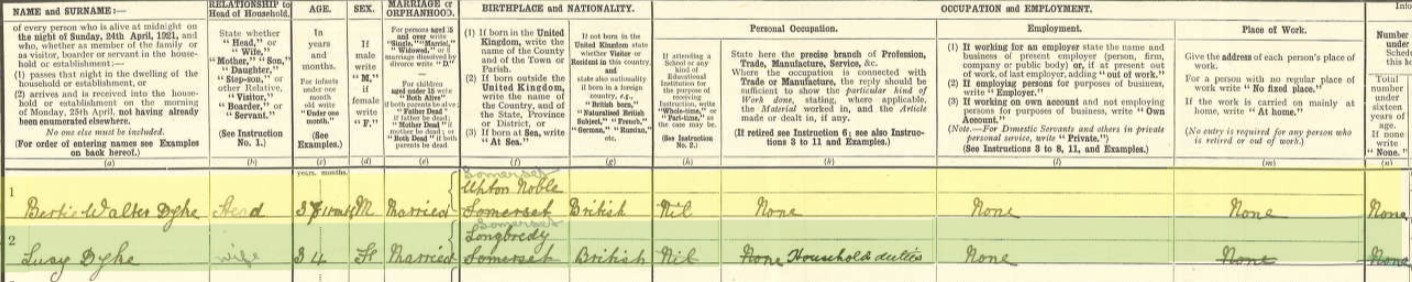 NAME and SURNAME:—
of every person who is alive at midnight on
the night of Sunday, 24th April, 1921, and
who, whether as member of the family or
as visitor, boarder or servant in the house-
hold or establishment:—
(1) passes that night in the dwelling of the
household or establishment, or
(2) arrives and is received into the house-
hold or establishment on the morning
of Monday, 25th April, not having already
been enumerated elsewhere.
No one else must be included.
(For order of entering names see Examples
on back hereof.)
(a)
RELATIONSHIP to
Head of Household.
State whether
"Head," or
"Wife,"
"Mother," "Son,"
"Daughter,"
"Step-son," or
other Relative,
"Visitor,"
"Boarder," or
"Servant."
(See Instruction
No. 1.)
(b)
AGE.
In
years
and
months.
For infants
under one
month
old write
"Under one
month."
(See
Examples.)
(c)
SEX.
If
male
write
"M,"
if
female
write
"F."
(d)
MARRIAGE or
ORPHANHOOD.
(e)
BIRTHPLACE and NATIONALITY.
(1) If born in the United
Kingdom, write the
name of the County
and of the Town or
Parish.
(2) If born outside the
United Kingdom,
write the name of the
Country, and of
the State, Province
or District, or
(3) If born at Sea, write
"At Sea."
(f)
If not born in the
United Kingdom state
whether Visitor or
Resident in this country,
and
state also nationality
if born in a foreign
country, e.g.,
"British born,"
"Naturalised British
Subject," "French,"
"German," "Russian,"
etc.
(g)
(h)
OCCUPATION and EMPLOYMENT.
Personal Occupation.
State here the precise branch of Profession,
Trade, Manufacture, Service, &c.
Where the occupation is connected with
Trade or Manufacture, the reply should be
sufficient to show the particular kind of
Work done, stating, where applicable,
the Material worked in, and the Article
made or dealt in, if any.
(If retired see Instruction 6; see also Instruc-
tions 3 to 11 and Examples.)
(k)
Employment.
(1) If working for an employer state the name and
business of present employer (person, firm,
company or public body) or, if at present out
of work, of last employer, adding "out of work."
(2) If employing persons for purposes of business,
write "Employer."
(3) If working on own account and not employing
persons for purposes of business, write "Own
Account."
(Note.—For Domestic Servants and others in private
personal service, write "Private.")
(See Instructions 3 to 8, 11, and Examples.)
(l)
Place of Work.
Give the address of each person's place of
work.
For a person with no regular place of
work write "No fixed place."
If the work is carried on mainly at
home, write "At home."
(No entry is required for any person who
is retired or out of work.)
(m)
Number
under
Total
number
under
sixteen
years of
age.
If none
write
"None."
(n)
years. months.
Somerset
Upton Noble
1 Bertie Walter Dyke Head M Married Somerset British Nil None None None None
Somerset
Longbredy
2 Lucy Dyke wife 34 F Married Somerset British Nil None Household duties None None None